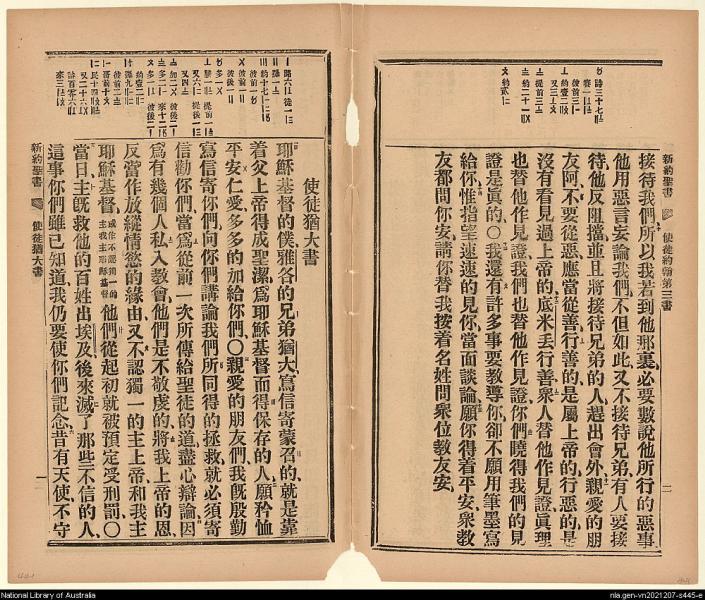 新約聖書 使徒約翰第三書 二
接待我們、所以我若到他那裏、必要數說他所行的惡事、
他用惡言妄論我們、不但如此、又不接待兄弟、有人要接
待他反阻擋並且將接待兄弟的人趕出會外、親愛的朋
友阿、不要從惡、應當從善、行善的是屬上帝的、行惡的是
沒有看見過上帝的、底米丟行善、衆人替他作見證、眞理
也替他作見證、我們也替他作見證、你們曉得我們的見
證是眞的、〇我還有許多事要教導你、卻不願用筆墨寫
給你、惟指望速速的見你、當面談論、願你得着平安、衆教
友都問你安、請你替我按着名姓問衆位教友安、
使徒猶大書
耶穌基督的僕、雅各的兄弟猶大、寫信寄蒙召的、就是靠
着父上帝得成聖潔、爲耶穌基督而得保存的人、願矜恤
平安仁愛、多多的加給你們、〇親愛的朋友們、我旣殷勤
寫信寄你們、向你們講論我們所同得的拯救、就必須寄
信勸你們、當爲從前一次所傳給聖徒的道、盡心辯論、因
爲有幾個人私入教會、他們是不敬虔的、將我上帝的恩、
反當作放縱情慾的緣由、又不認獨一的主上帝、和我主
耶穌基督、或作不認獨一的主我主耶穌基督他們從起初就被預定受刑罰、〇
當日主旣救他的百姓出埃及、後來滅了那些不信的人、
這事你們雖已知道、我仍要使你們記念、昔有天使不守
新約聖書 使徒猶大書 一
National Library of Australia
nla.gen-vn2021207-s445-e